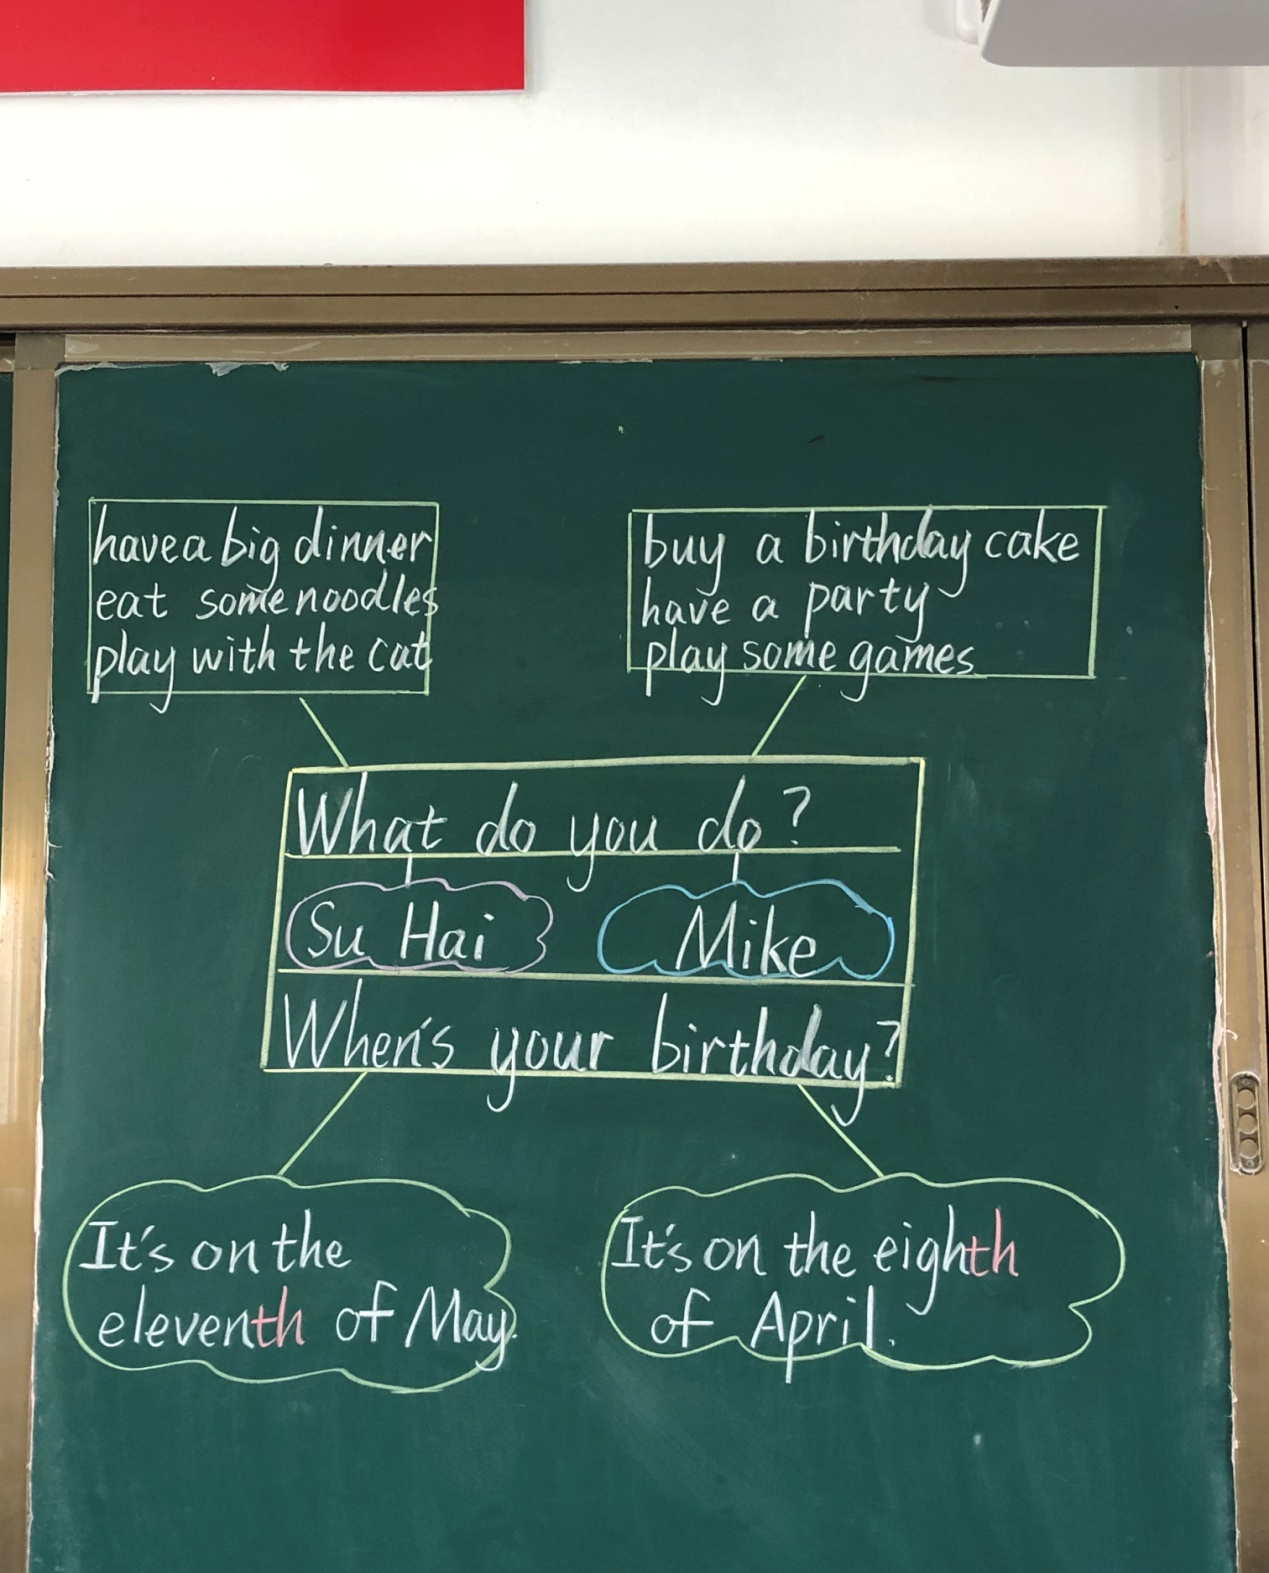 have a big dinner
eat some noodles
play with the cat
buy a birthday cake
have a party
play some games
What do you do?
Su Hai
Mike
When's your birthday?
It's on the
eleventh of May.
It's on the eighth
of April.